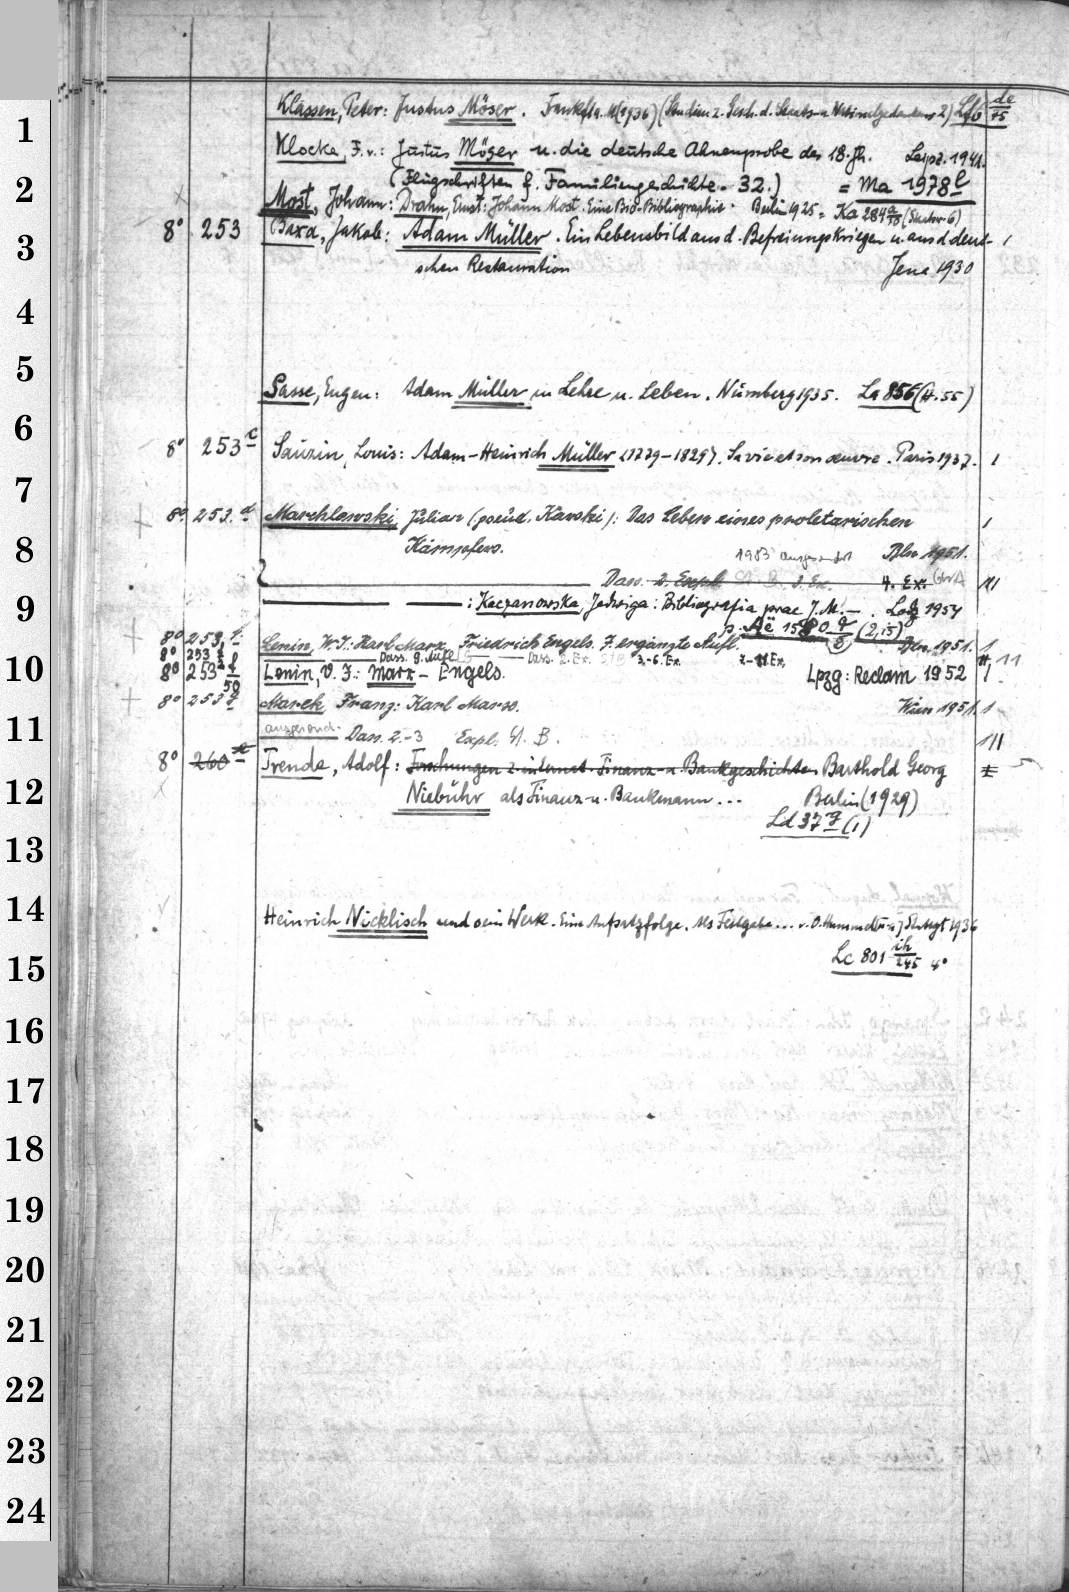 Klassen, Peter: Justus Möser. Frankft a. M. (1936) (Studien z. Gesch. d. Staats- u. Nationalgedankens 2)
1
Klocke, F. v.: Justus Möser u. die deutsche Ahnenprobe des 18. Jh. Leipz. 1941.
(Flugschriften f. Familiengeschichte. 32.) = Ma 1978
2
Most, Johann: Drahn, Ernst: Johann Most. Eine Bio-Bibliographie. Berlin 1925 = Ka 284
8° 253 Baxa, Jakob: Adam Müller. Ein Lebensbild aus d. Befreiungskriegen u. aus d. deut- 1
3
schen Restauration Jena 1930
4
5
Sasse, Eugen: Adam Müller in Lehre u. Leben. Nürnberg 1935. La 856 (H. 55)
6
8° 253 c Sauzin, Louis: Adam-Heinrich Müller (1779-1829). Sa vie et son œuvre. Paris 1937. 1
7
8° 253. d Marchlewski, Julian (pseud. Karski): Das Leben eines proletarischen 1
8
Kämpfers. Bln 1951.
1983 ausgesondert
Dass. 2. Expl. 4. Ex.
9
: Kaczanowska, Jadwiga: Bibliografia prac J. M. Lodz 1954
(2,15)
8° 253 Lenin, W. I.: Karl Marx, Friedrich Engels. 7. ergänzte Aufl. Bln. 1951. 1
8° 253 Dass. 9. Aufl. Dass. 2. Ex. 3.-6. Ex. 7-11 Ex. 11
10
8° 253 Lenin, V. I.: Marx-Engels. Lpzg: Reclam 1952 1
50
8° 253 Marek, Franz: Karl Marx. Wien 1951. 1
11
ausgesond. Dass. 2.-3 Expl. 111
8° 260 Trende, Adolf: Forschungen z. internat. Finanz- u. Bankgeschichte Barthold Georg
12
Niebuhr als Finanz- u. Bankmann... Berlin (1929)
Ld 37 (1)
13
14
Heinrich Nicklisch und sein Werk. Eine Aufsatzfolge. Als Festgabe... 1936
Lc 801 ih/245 4°
15
16
17
18
19
20
21
22
23
24